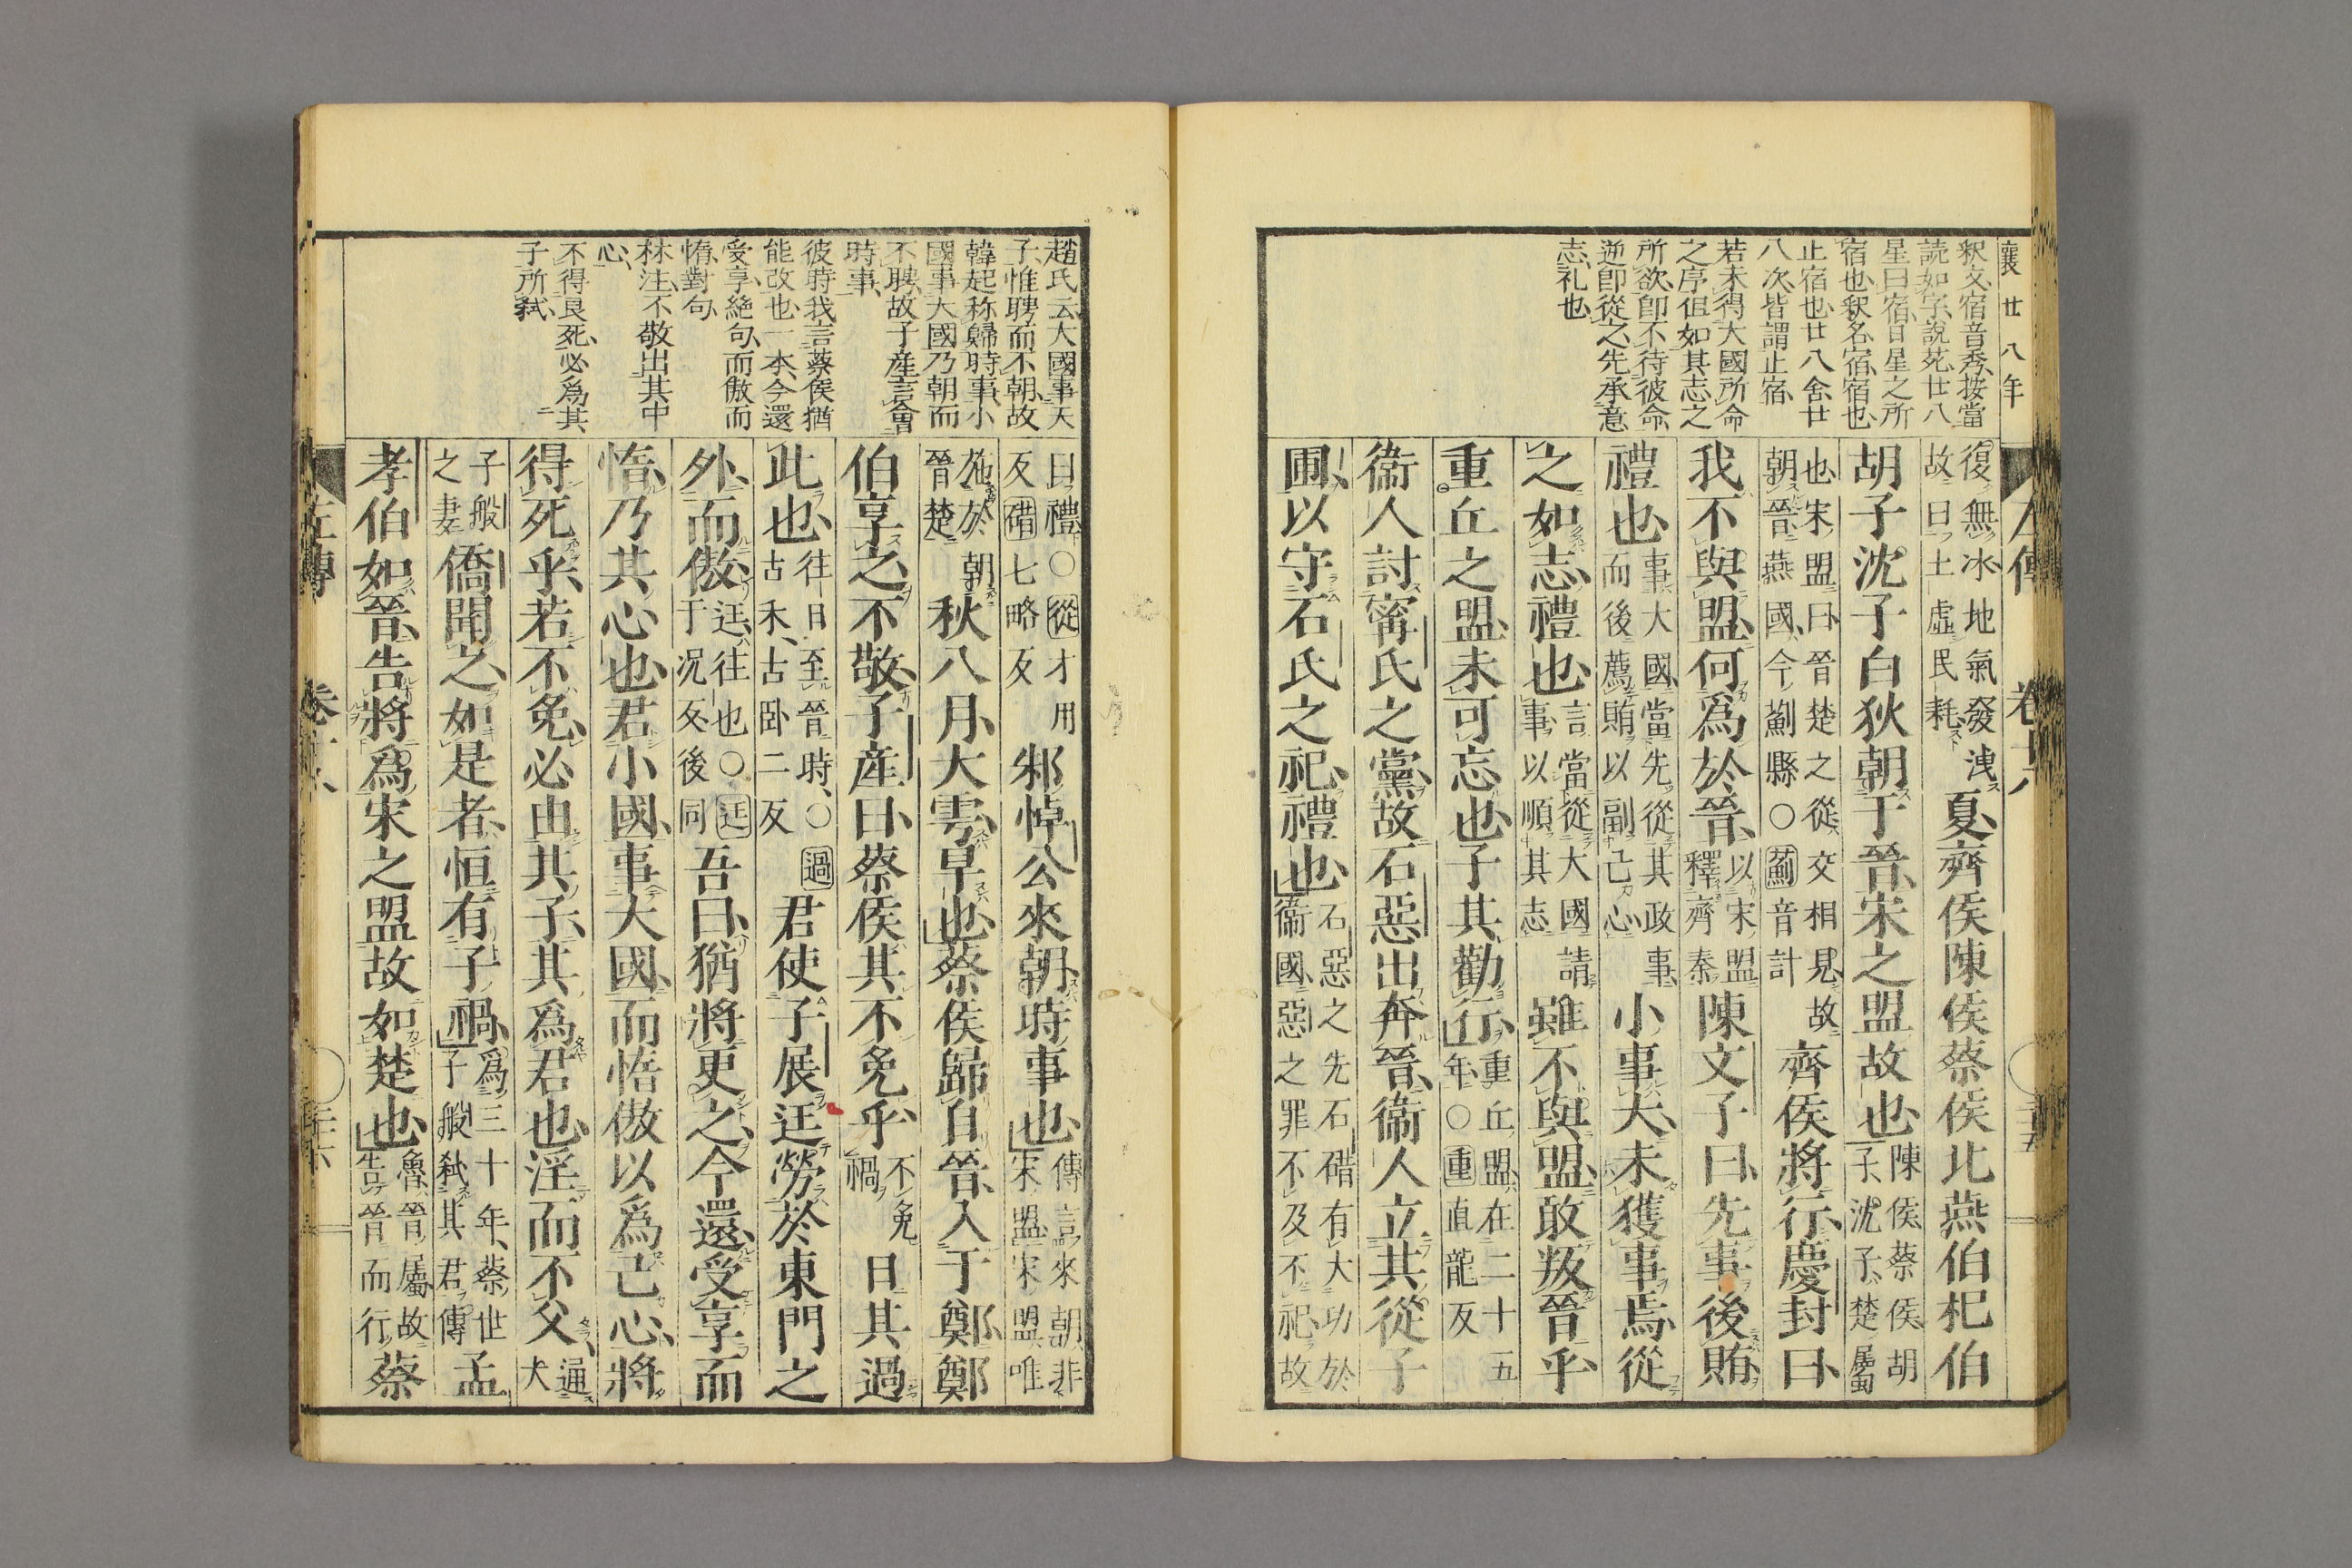 襄廿八年
釈文宿音秀按當
読如字説苑廿八
星曰宿日星之所
宿也釈名宿宿也
止宿也廿八舍廿
八次皆謂止宿
若未得大國所命
之序但如其志之
所欲即不待彼命
逆即從之先承意
志礼也
左傳 卷十八 三十五
復無冰地氣發洩
故曰土虛民耗
夏齊侯陳侯蔡侯北燕伯杞伯
胡子沈子白狄朝于晉宋之盟故也
陳侯蔡侯胡
子沈子楚屬
也宋盟曰晉楚之從交相見故
朝晉燕國今薊縣○薊音計
齊侯將行慶封曰
我不與盟何爲於晉
以宋盟
釋齊秦
陳文子曰先事後賄
禮也
事大國當先從其政事
而後薦賄以副己心
小事大未獲事焉從
之如志禮也
言當從大國請
事以順其志
雖不與盟敢叛晉乎
重丘之盟未可忘也子其勸行
重丘盟在二十五
年○重直龍反
衞人討甯氏之黨故石惡出奔晉衞人立其從子
圃以守石氏之祀禮也
石惡之先石碏有大功於
衞國惡之罪不及不祀故
趙氏云大國事天
子惟聘而不朝故
韓起称歸時事小
國事大國乃朝而
不聘故子産言會
時事
彼時我言蔡侯猶
能改也一本今還
受享絶句而傲而
惰對句
林注不敬出其中
心
不得良死必爲其
子所弒
曰禮○從才用
反碏七略反
邾悼公來朝時事也
傳言來朝非
宋盟宋盟唯
施於朝
晉楚
秋八月大雩旱也蔡侯歸自晉入于鄭鄭
伯享之不敬子産曰蔡侯其不免乎
不免
禍
日其過
此也
往日至晉時○過
古禾古卧二反
君使子展迋勞於東門之
外而傲
迋往也○迋
于况反後同
吾曰猶將更之今還受享而
惰乃其心也君小國事大國而惰傲以爲己心將
得死乎若不免必由其子其爲君也淫而不父
通大
子般
之妻
僑聞之如是者恒有子禍
爲三十年蔡世
子般弒其君傳
孟
孝伯如晉告將爲宋之盟故如楚也
魯晉屬故
告晉而行
蔡
左傳 卷十八 三十六